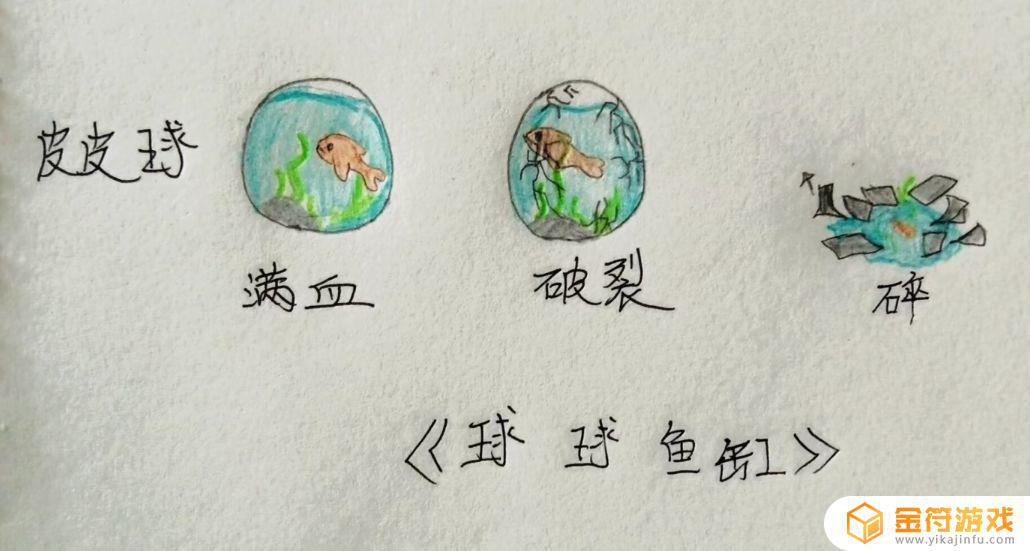 皮皮球
满血
破裂
碎
《球球鱼缸》
金符游戏
www.yikajinfu.com